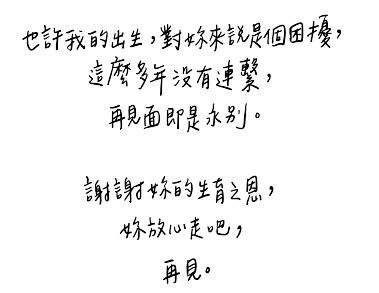 也許我的出生，對妳來說是個困擾，
這麼多年沒有連繫，
再見面即是永別。
謝謝妳的生育之恩，
妳放心走吧，
再見。